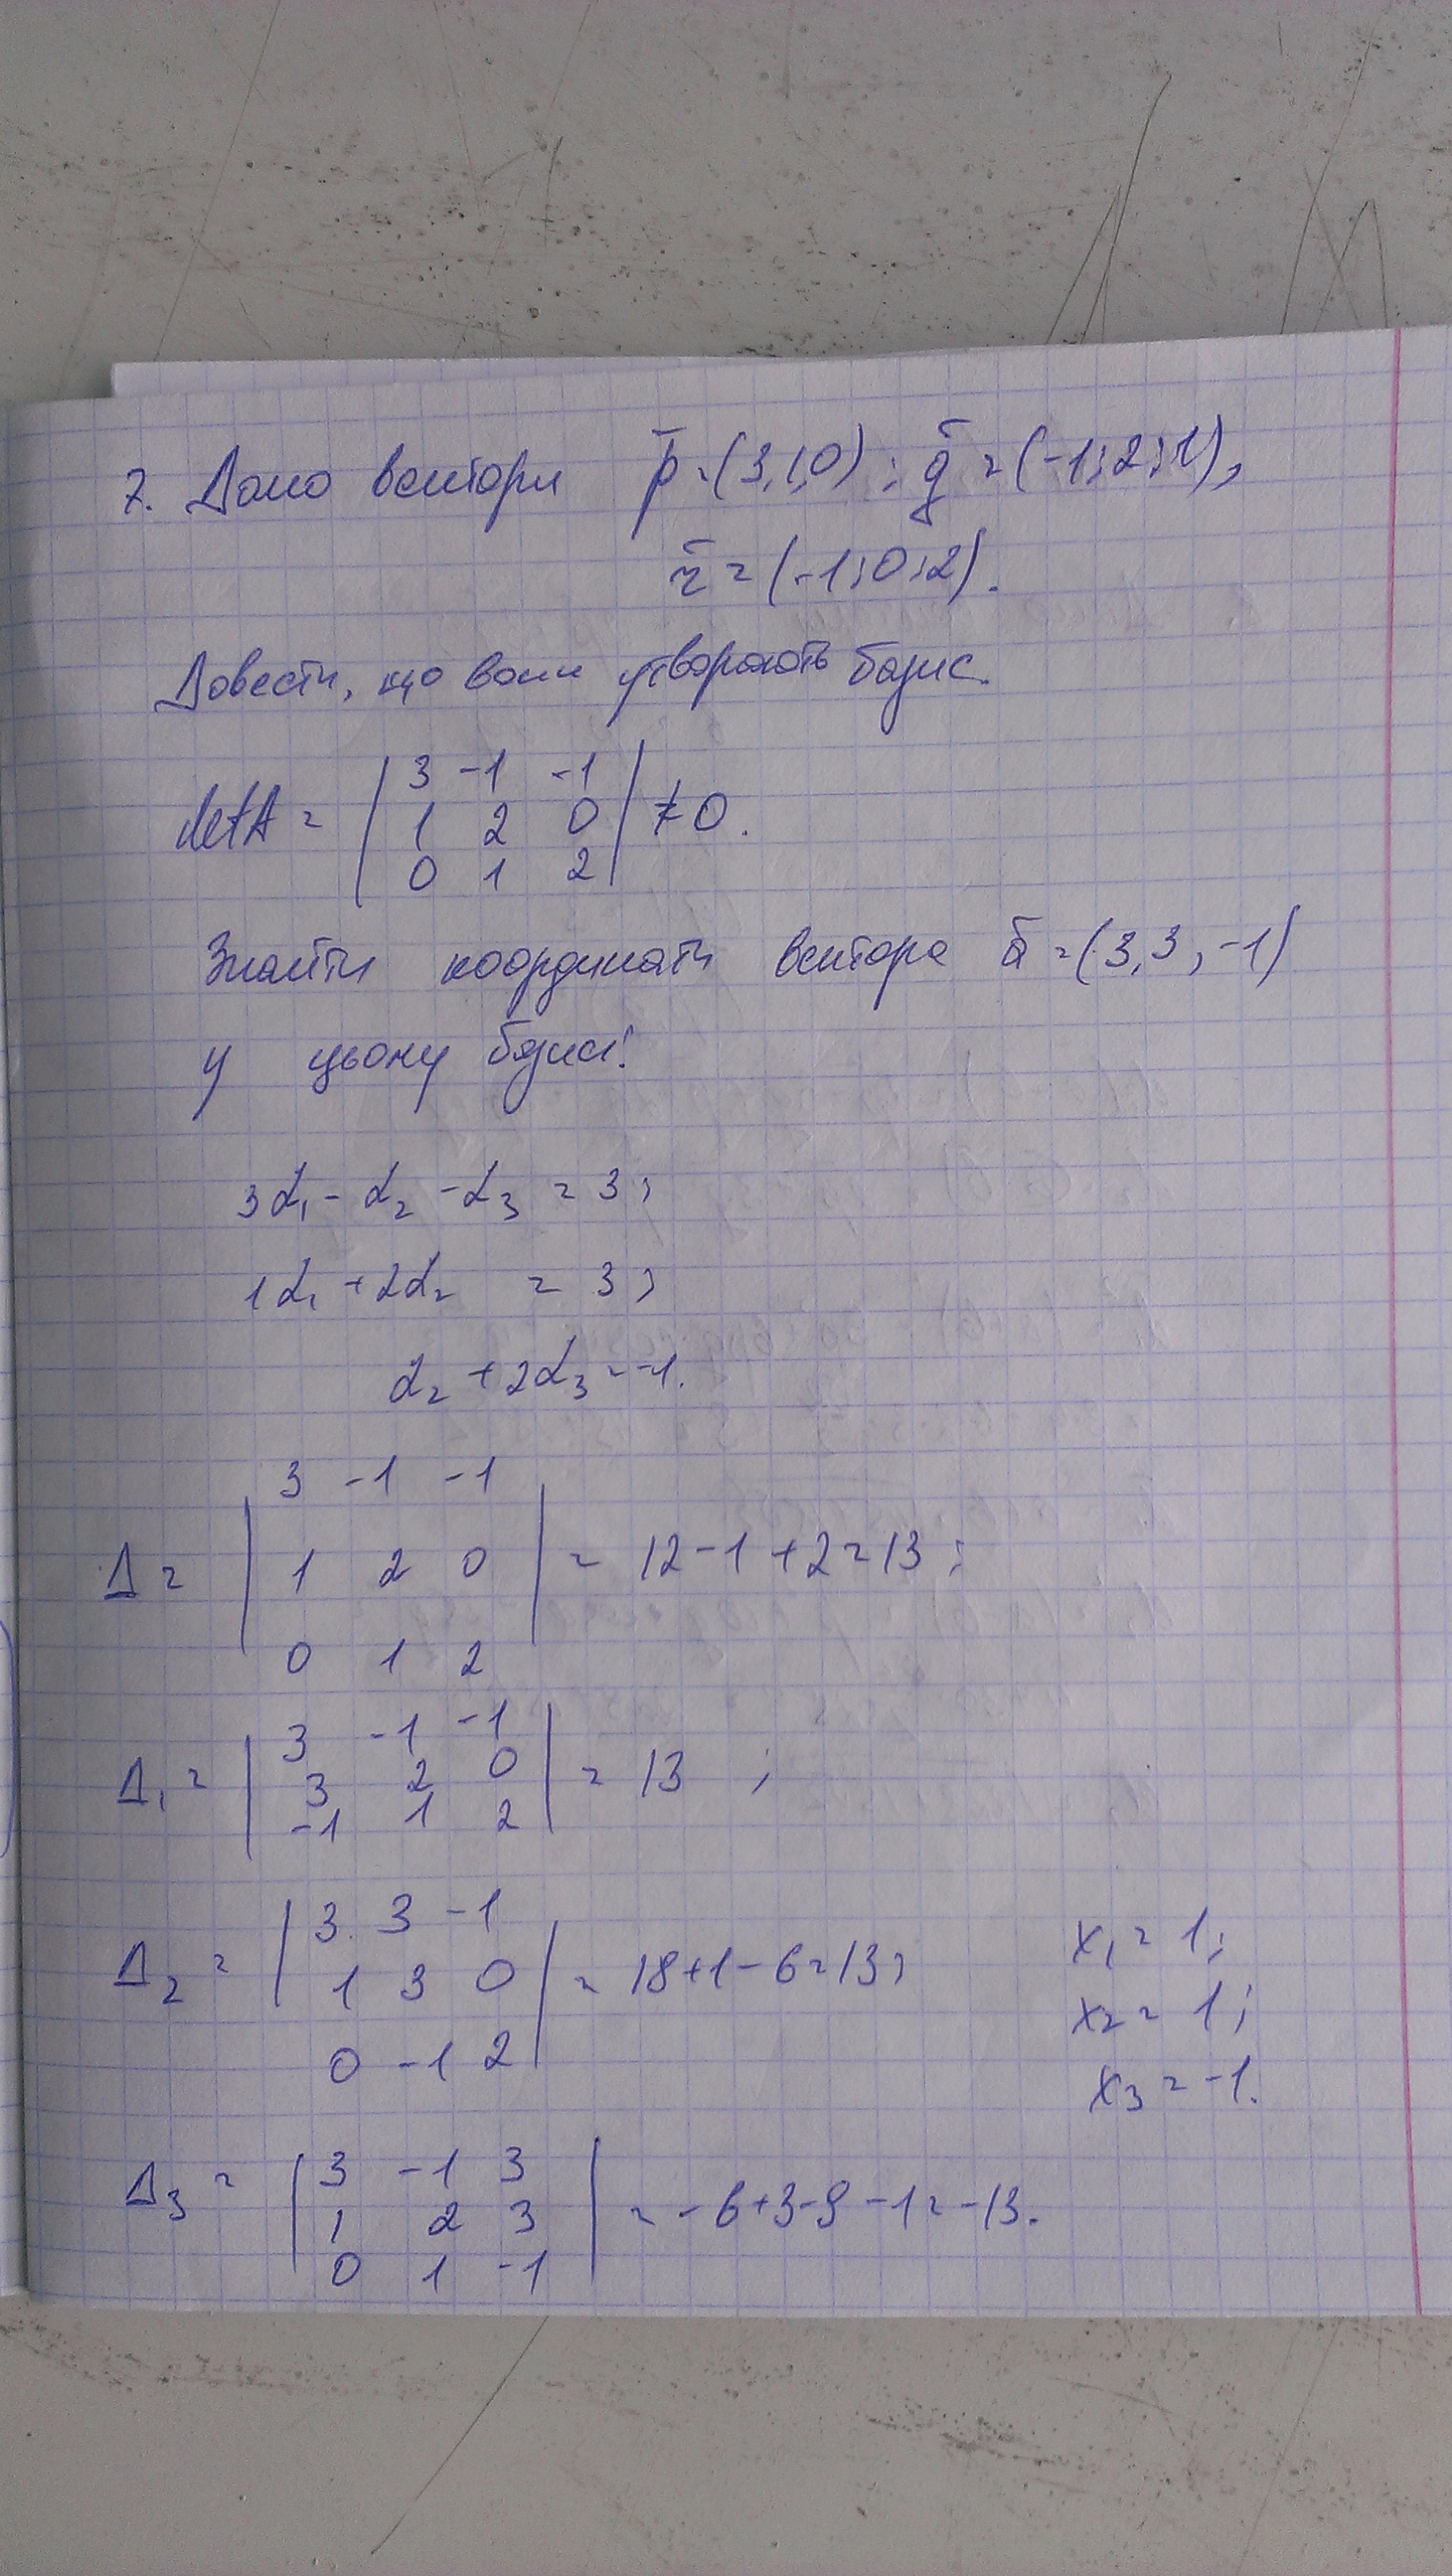 7. Дано вектори p̄ = (3,1,0); q̄ = (-1;2;1),
r̄ = (-1;0;2).
Довести, що вони утворюють базис.
detA = | 3 -1 -1 |
| 1 2 0 | ≠ 0.
| 0 1 2 |
Знайти координати вектора ā = (3,3,-1)
у цьому базисі!
3α₁ - α₂ - α₃ = 3;
1α₁ + 2α₂ = 3;
α₂ + 2α₃ = -1.
3 -1 -1
Δ = | 1 2 0 | = 12 - 1 + 2 = 13;
0 1 2
3 -1 -1
Δ₁ = | 3 2 0 | = 13;
-1 1 2
3 3 -1
Δ₂ = | 1 3 0 | = 18 + 1 - 6 = 13;
0 -1 2
x₁ = 1;
x₂ = 1;
x₃ = -1.
3 -1 3
Δ₃ = | 1 2 3 | = -6 + 3 - 9 - 1 = -13.
0 1 -1